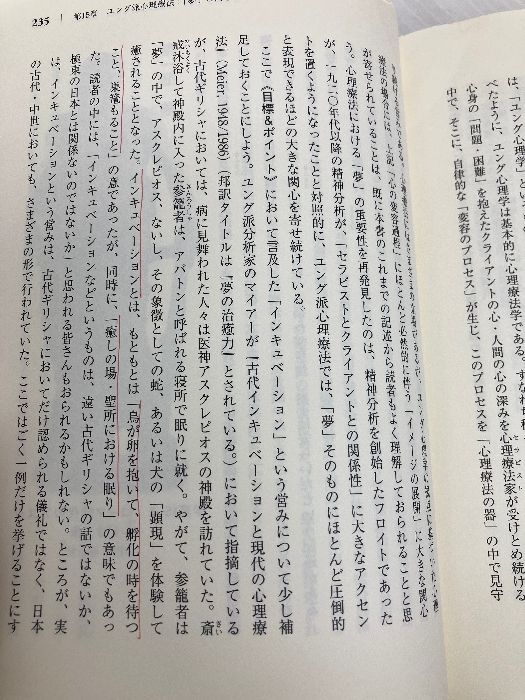 235 | 第15章 ユング派心理療法
療法の場合には、上記「心の変容過程」にほとんど必然的に伴う「イメージの展開」に大きな関心
が寄せられていることは、既に本書のこれまでの記述から読者もよく理解しておられることと思
う。心理療法における「夢」の重要性を再発見したのは、精神分析を創始したフロイトであった
が、一九二〇年代以降の精神分析が、「セラピストとクライアントとの関係性」に大きなアクセン
トを置くようになったことと対照的に、ユング派心理療法では、「夢」そのものにほとんど圧倒的
と表現できるほどの大きな関心を寄せ続けている。
ここで《目標&ポイント》において言及した「インキュベーション」という営みについて少し補
足しておくことにしよう。ユング派分析家のマイアーが『古代インキュベーションと現代の心理療
法』(Meier, 1948/1986)(邦訳タイトルは『夢の治癒力』とされている。)において指摘している
が、古代ギリシャにおいては、病に見舞われた人々は医神アスクレピオスの神殿を訪れていた。斎
戒沐浴して神殿内に入った参籠者は、アバトンと呼ばれる寝所で眠りに就く。やがて、参籠者は
「夢」の中で、アスクレピオス、ないし、その象徴としての蛇、あるいは犬の「顕現」を体験して
癒されることとなった。インキュベーションとは、もともとは「鳥が卵を抱いて、孵化の時を待つ
こと、巣籠もること」の意であったが、同時に、「癒しの場・聖所における眠り」の意味でもあっ
た。読者の中には、「インキュベーションなどというものは、遠い古代ギリシャの話ではないか、
極東の日本とは関係ないのではないか」と思われる皆さんもおられるかもしれない。ところが、実
は、インキュベーションという営みは、古代ギリシャにおいてだけ認められる儀礼ではなく、日本
の古代・中世においても、さまざまの形で行われていた。ここではごく一例だけを挙げることにす
べたように、ユング心理学は基本的に心理学である。すなわ
心身の「問題・困難」を抱えたクライアントの心・人間の心の深みを心理療法家が受けとめ続ける
中で、そこに、自律的な「変容のプロセス」が生じ、このプロセスを「心理療法の器」の中で見守